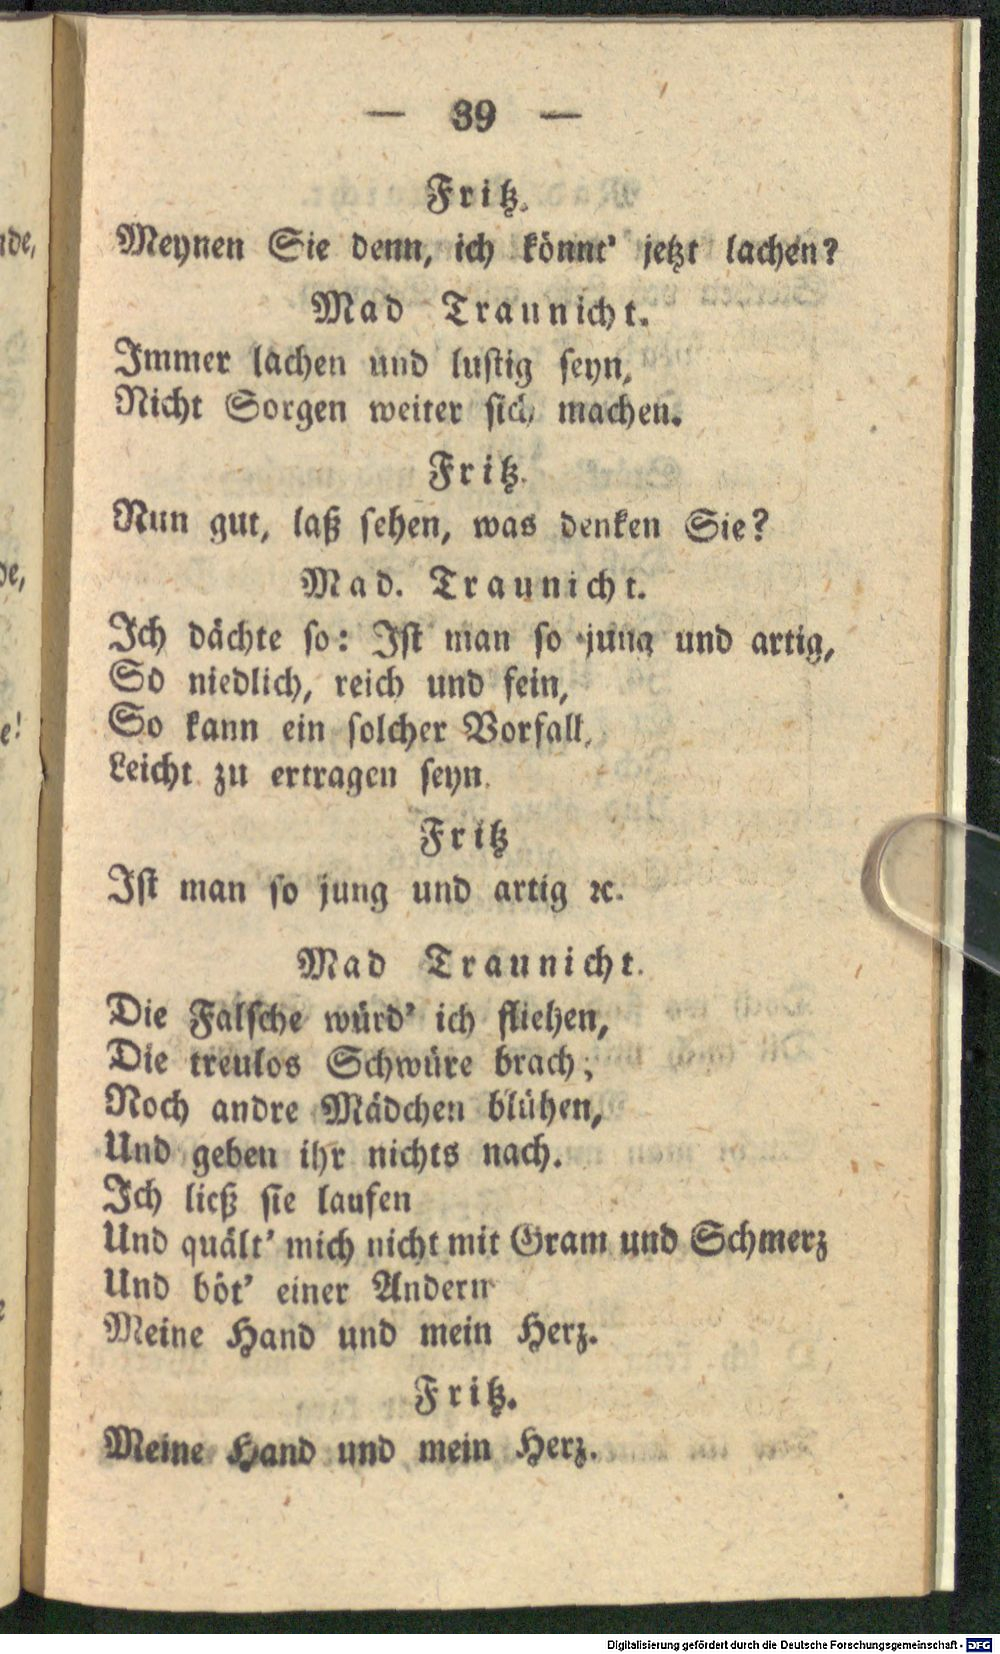 — 39 —
Fritz.
Meynen Sie denn, ich könnt' jetzt lachen?
Mad Traunicht.
Immer lachen und lustig seyn,
Nicht Sorgen weiter sich machen.
Fritz.
Nun gut, laß sehen, was denken Sie?
Mad. Traunicht.
Ich dächte so: Ist man so jung und artig,
So niedlich, reich und fein,
So kann ein solcher Vorfall,
Leicht zu ertragen seyn.
Fritz
Ist man so jung und artig ꝛc.
Mad Traunicht.
Die Falsche würd' ich fliehen,
Die treulos Schwüre brach;
Noch andre Mädchen blühen,
Und geben ihr nichts nach.
Ich ließ sie laufen
Und quält' mich nicht mit Gram und Schmerz
Und böt' einer Andern
Meine Hand und mein Herz.
Fritz.
Meine Hand und mein Herz.
nde,
de,
e!
Digitalisierung gefördert durch die Deutsche Forschungsgemeinschaft - DFG